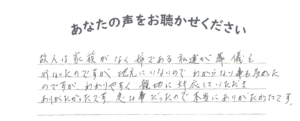 あなたの声をお聴かせください
故人は家族がなく 姪である私達が 葬儀を
行なったのですが、地元にいないので わからない事も多かった
のですが わかりやすく 親切に 対応していただき
ありがたかったです。急な事だったので 本当に ありがたかったです